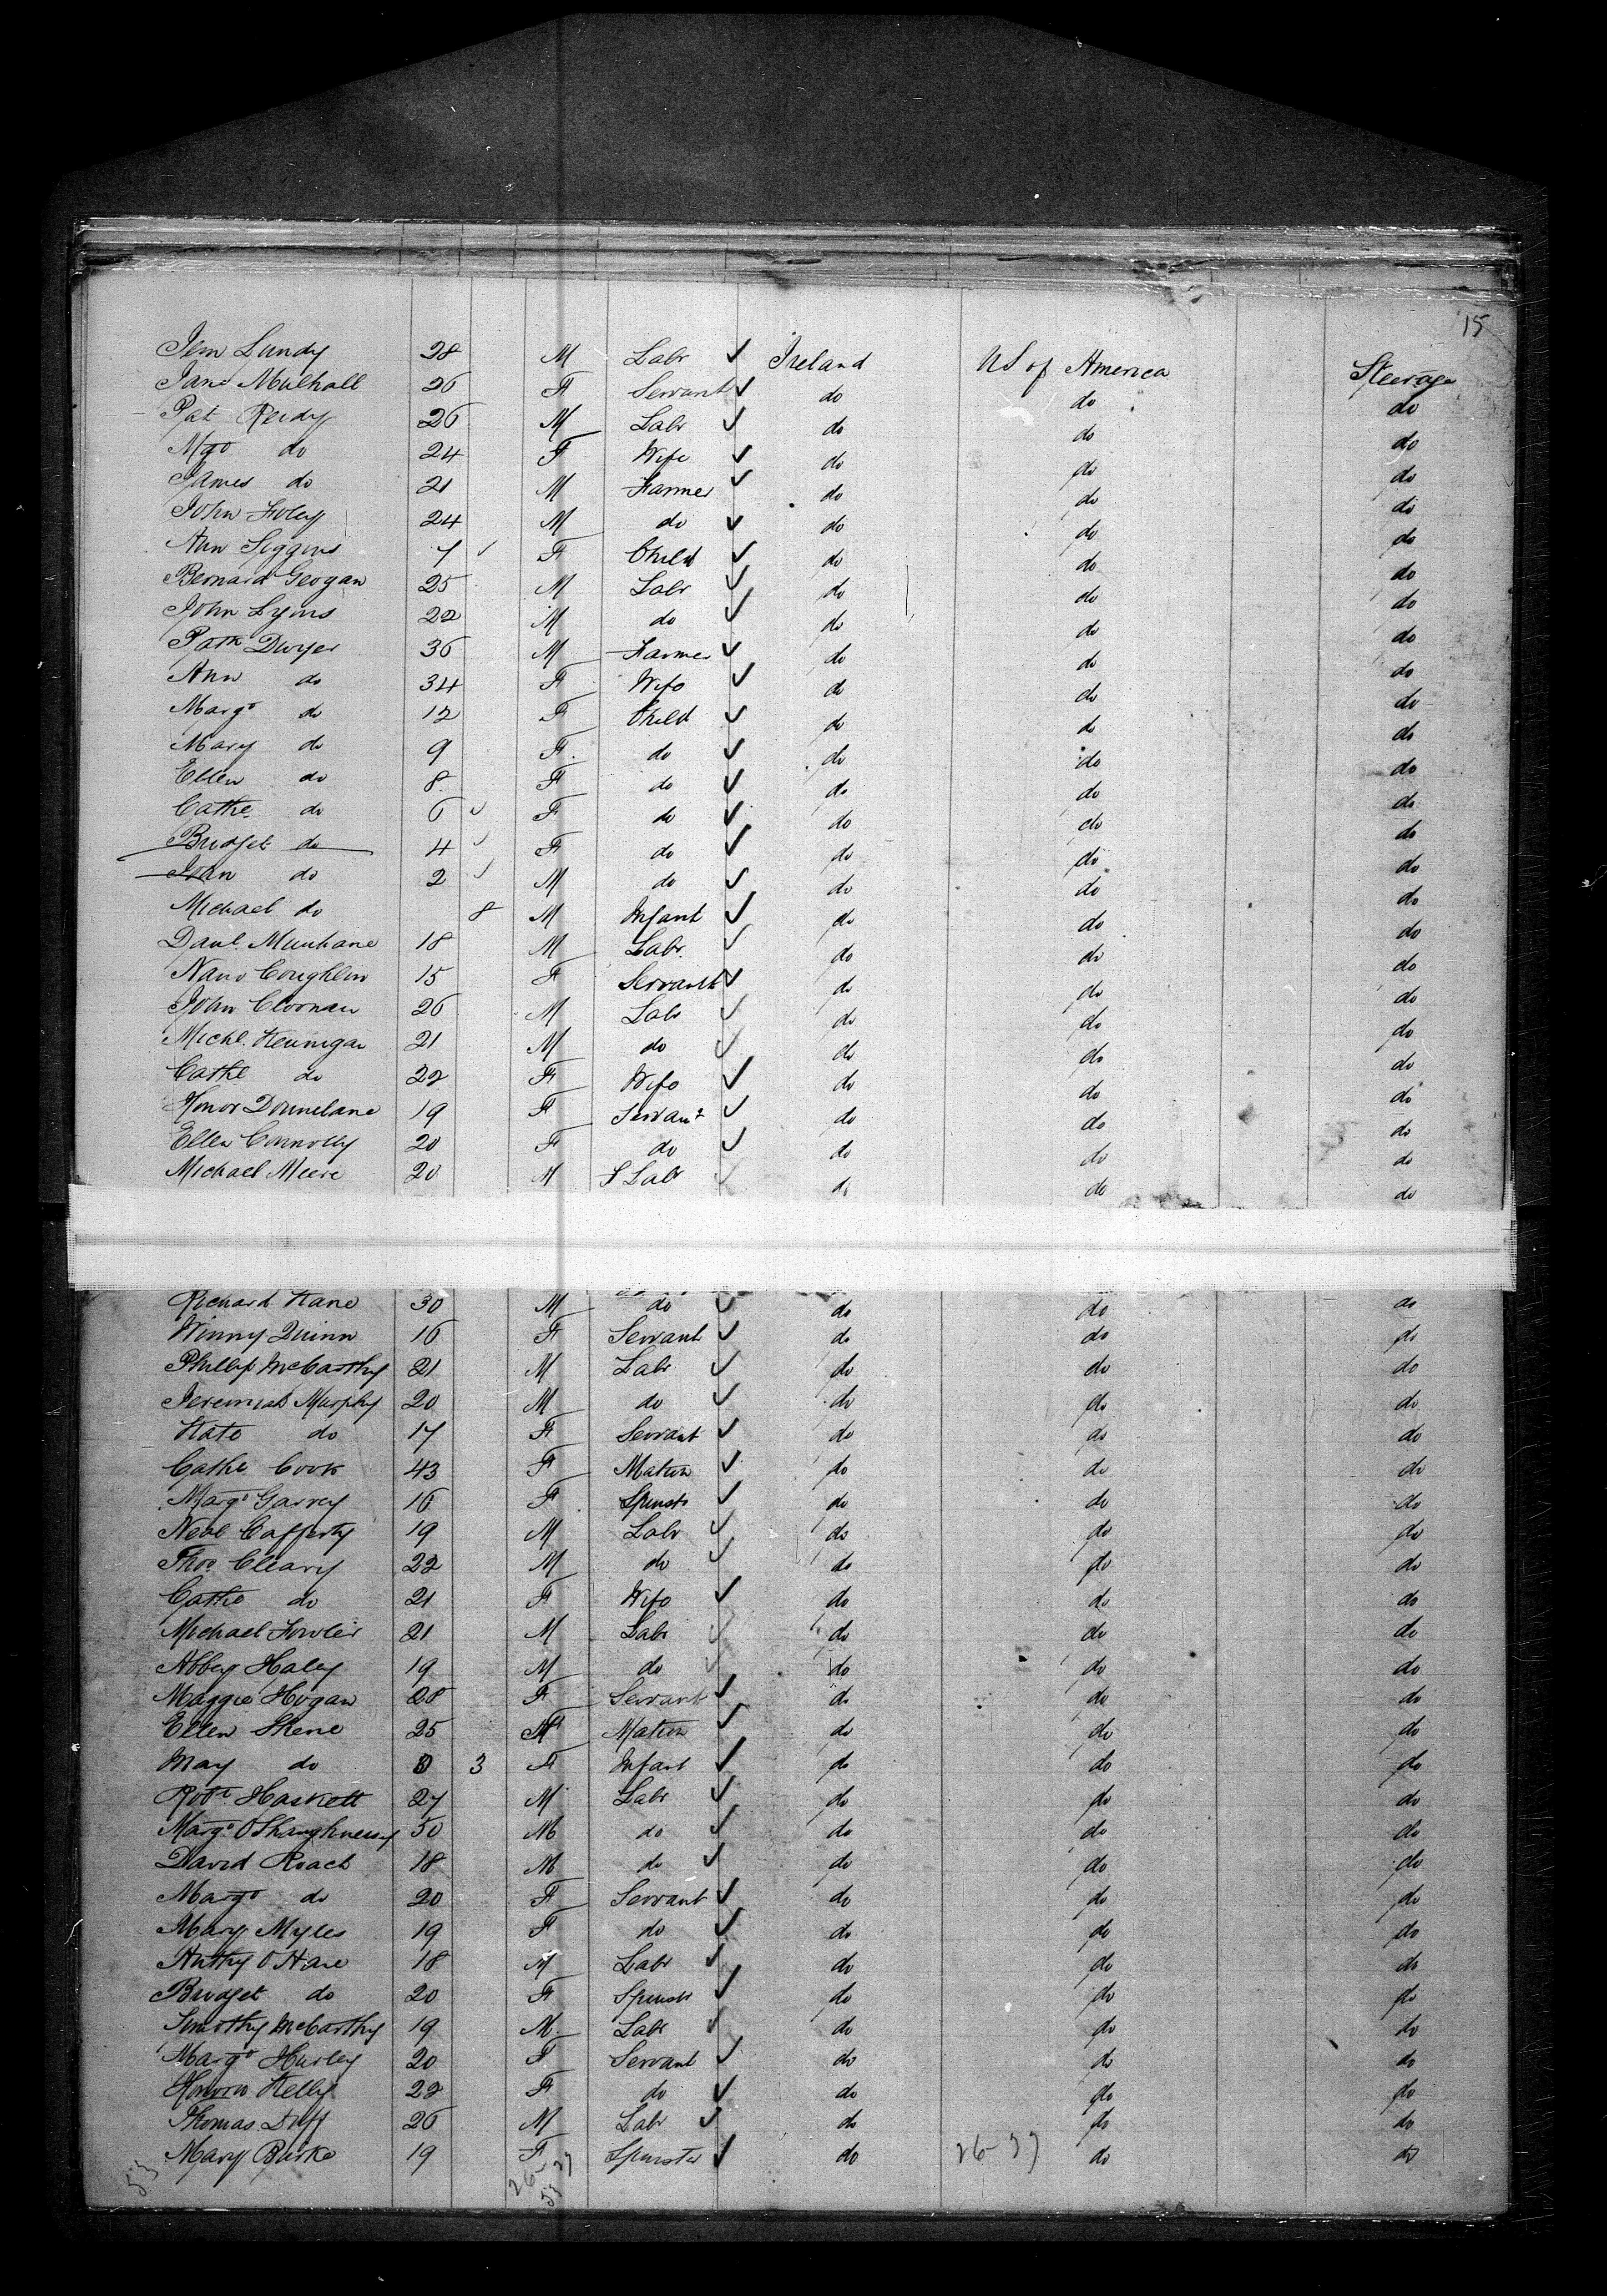 15
Jem Lundy 28 M Labr ✓ Ireland US of America Steerage
Jane Mulhall 26 F Servant ✓ do do do
Pat Reidy 26 M Labr ✓ do do do
Mgt do 24 F Wife ✓ do do do
James do 21 M Farmer ✓ do do do
John Foley 24 M do ✓ do do do
Ann Siggins 7 ✓ F Child ✓ do do do
Bernard Geogan 25 M Labr ✓ do do do
John Lyons 22 M do ✓ do do do
Patk Dwyer 36 M Farmer ✓ do do do
Ann do 34 F Wife ✓ do do do
Margt do 12 F Child ✓ do do do
Mary do 9 F do ✓ do do do
Ellen do 8 F do ✓ do do do
Cathe do 6 ✓ F do ✓ do do do
Bridget do 4 ✓ F do ✓ do do do
John do 2 ✓ M do ✓ do do do
Michael do 8 M Infant ✓ do do do
Danl. Munhane 18 M Labr. ✓ do do do
Nano Coughlin 15 F Servant ✓ do do do
John Cloonan 26 M Labr ✓ do do do
Michl. Hennigan 21 M do ✓ do do do
Cathe do 22 F Wife ✓ do do do
Honor Donnelane 19 F Servant ✓ do do do
Ellen Connolly 20 F do ✓ do do do
Michael Meere 20 M Labr ✓ do do do
Richard Kane 30 M do ✓ do do do
Winny Quinn 16 F Servant ✓ do do do
Phillip McCarthy 21 M Labr ✓ do do do
Jeremiah Murphy 20 M do ✓ do do do
Kate do 17 F Servant ✓ do do do
Cathe Cook 43 F Matron ✓ do do do
Margt Garvey 16 F Spinstr ✓ do do do
Neal Cafferty 19 M Labr ✓ do do do
Thos Cleary 22 M do ✓ do do do
Cathe do 21 F Wife ✓ do do do
Michael Fowler 21 M Labr ✓ do do do
Abbey Haley 19 M do ✓ do do do
Maggie Hogan 28 F Servant ✓ do do do
Ellen Skene 25 F Matron ✓ do do do
May do 0 3 F Infant ✓ do do do
Robt. Haskett 27 M Labr ✓ do do do
Margt OShaughnessy 50 M do ✓ do do do
David Roach 18 M do ✓ do do do
Margt do 20 F Servant ✓ do do do
Mary Myles 19 F do ✓ do do do
Anthy O Hare 18 M Labr ✓ do do do
Bridget do 20 F Spinstr ✓ do do do
Timothy McCarthy 19 M Labr ✓ do do do
Margt Hurley 20 F Servant ✓ do do do
Honora Kelly 22 F do ✓ do do do
Thomas Duff 26 M Labr ✓ do do do
Mary Burke 19 F Spinster ✓ do do do
26-27
53
26
53 27